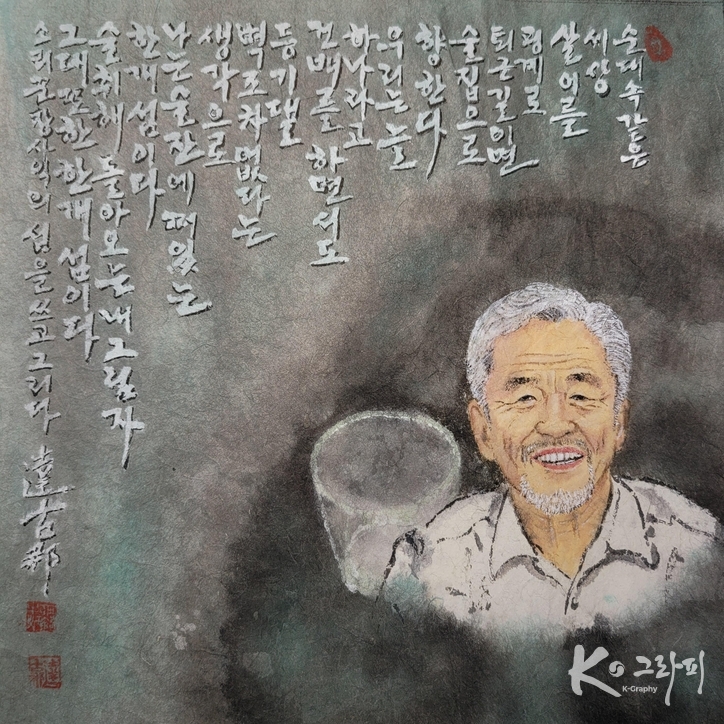 순대속 같은
세상
살이를
핑계로
퇴근길이면
술집으로
향한다
우리는 늘
하나라고
건배를 하면서도
등기댈
벽조차 없다는
생각으로
나는 술잔에 떠있는
한개 섬이다
술취해 돌아오는 내 그림자
그대 또한 한개 섬이다
소리꾼 장사익의 섬을 쓰고 그리다
K 그라피
K-Graphy